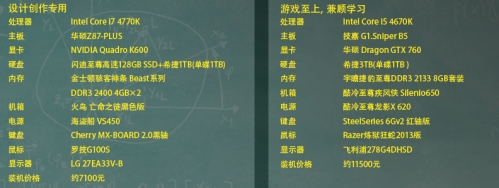 设计创作专用
处理器 Intel Core i7 4770K
主板 华硕Z87-PLUS
显卡 NVIDIA Quadro K600
硬盘 闪迪至尊高速128GB SSD+希捷1TB(单碟1TB)
内存 金士顿骇客神条 Beast系列
DDR3 2400 4GB×2
机箱 火鸟 亡命之徒黑色版
电源 海盗船 VS450
键盘 Cherry MX-BOARD 2.0黑轴
鼠标 罗技G100S
显示器 LG 27EA33V-B
装机价格 约7100元
游戏至上, 兼顾学习
处理器 Intel Core I5 4670K
主板 技嘉 G1.Sniper B5
显卡 华硕 Dragon GTX 760
硬盘 希捷3TB(单碟1TB)
内存 宇瞻捷豹至尊DDR3 2133 8GB套装
机箱 酷冷至尊疾风侠 Silenio650
电源 酷冷至尊龙影X 620
键盘 SteelSeries 6Gv2 红轴版
鼠标 Razer炼狱蝰蛇2013版
显示器 飞利浦278G4DHSD
装机价格 约11500元